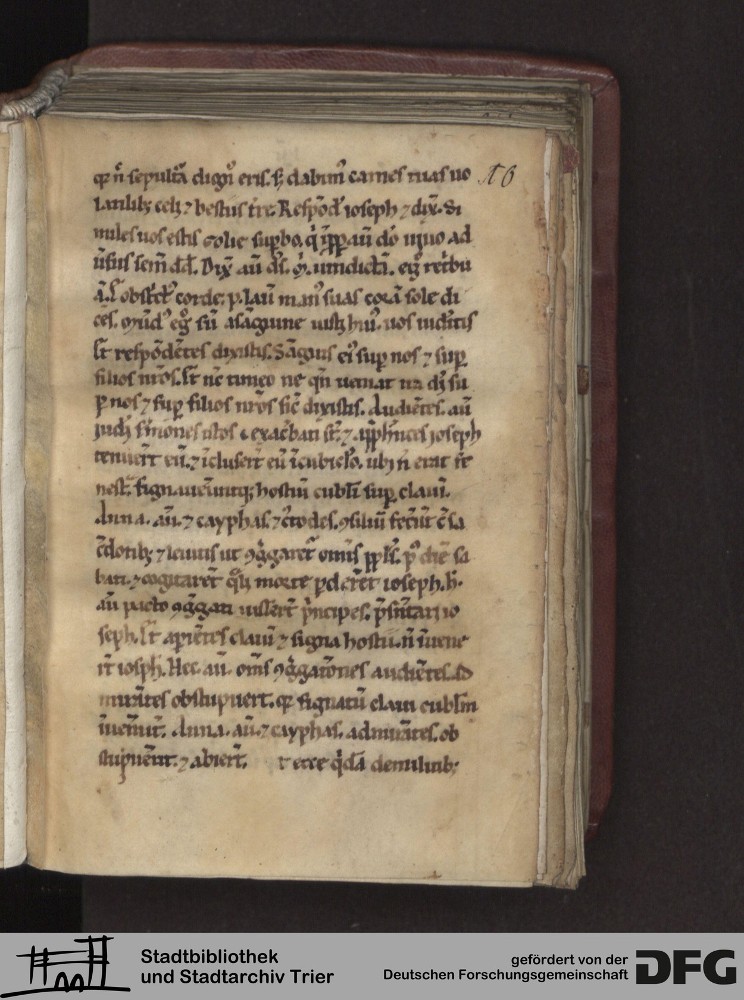 qr n̄ sepultā digni eris. s; dabim carnes tuas uo
latilib; celi ⁊ bestiis tre. Respōd ioseph ⁊ dix. Si
miles uos estis golie supbo. q̇
ūsus scm dd. Dix aū ds. m̊. uindictā. egº retbu
ā. ⁊ obst corde. p. lauit manº suas corā sole di
cēs. mūdº egº sū a sāguine iusti huiº. uos uidebitis
⁊ respōdētes dixistis. Sāguis eiº sup nos ⁊ sup
filios nr̄os. ⁊ nc timeo ne qn ueniat ira di su
p nos ⁊ sup filios nr̄os sic dixistis. Audiētes. aū
iudi s̄mones istos exacbati st. ⁊ app̄hndētes ioseph
tenuert eū. ⁊ icluserit eū i cubiclo. ubi n̄ erat fe
nest. signauerūtq; hostiū cubli sup clauī.
Anna. aū. ⁊ cayphas. ⁊ custodes. 9siliū fecerūt cū sa
cdotib; ⁊ leuitis ut 9g̊garet omis ppls. p diē sa
bati. ⁊ cogitaret qli morte pderet ioseph. h̄.
aū facto 9g̊gati iusserūt p̄ncipes. p̄sentari io
seph. ⁊ apiētes clauī ⁊ signa hostii. n̄ inuene
rt ioseph. Hec. aū. omis 9g̊gationes audiētes. ad
mirātes obstupuert. qr signatū claui cublm
inuenerūt. Anna. aū. ⁊ cayphas. admirātes. ob
stupuerūt. ⁊ abiert. t ecce q̇dā de militib;
16
Stadtbibliothek
und Stadtarchiv Trier
gefördert von der
Deutschen Forschungsgemeinschaft
DFG